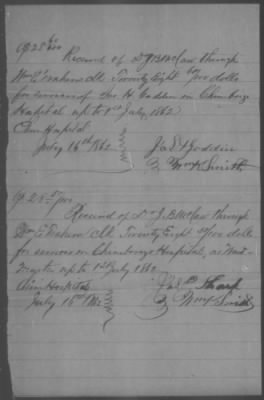 $28 60/100
Received of Dr J B McCaw through
Wm E Graham Sct. Twenty Eight 60/100 dolls
for services of Geo. H. Godden on Chimborazo
Hospital up to 1st July, 1862
Chim Hospital
July 16th 1862
Jas H Godden
Wm H Smith
$28
Received of Dr J B McCaw through
Wm E Graham Twenty Eight dolls
for services on Chimborazo Hospital, as Ward
Master up to 1st July 1862
Chim Hospital
July 16th 1862
Sharp
Wm H Smith